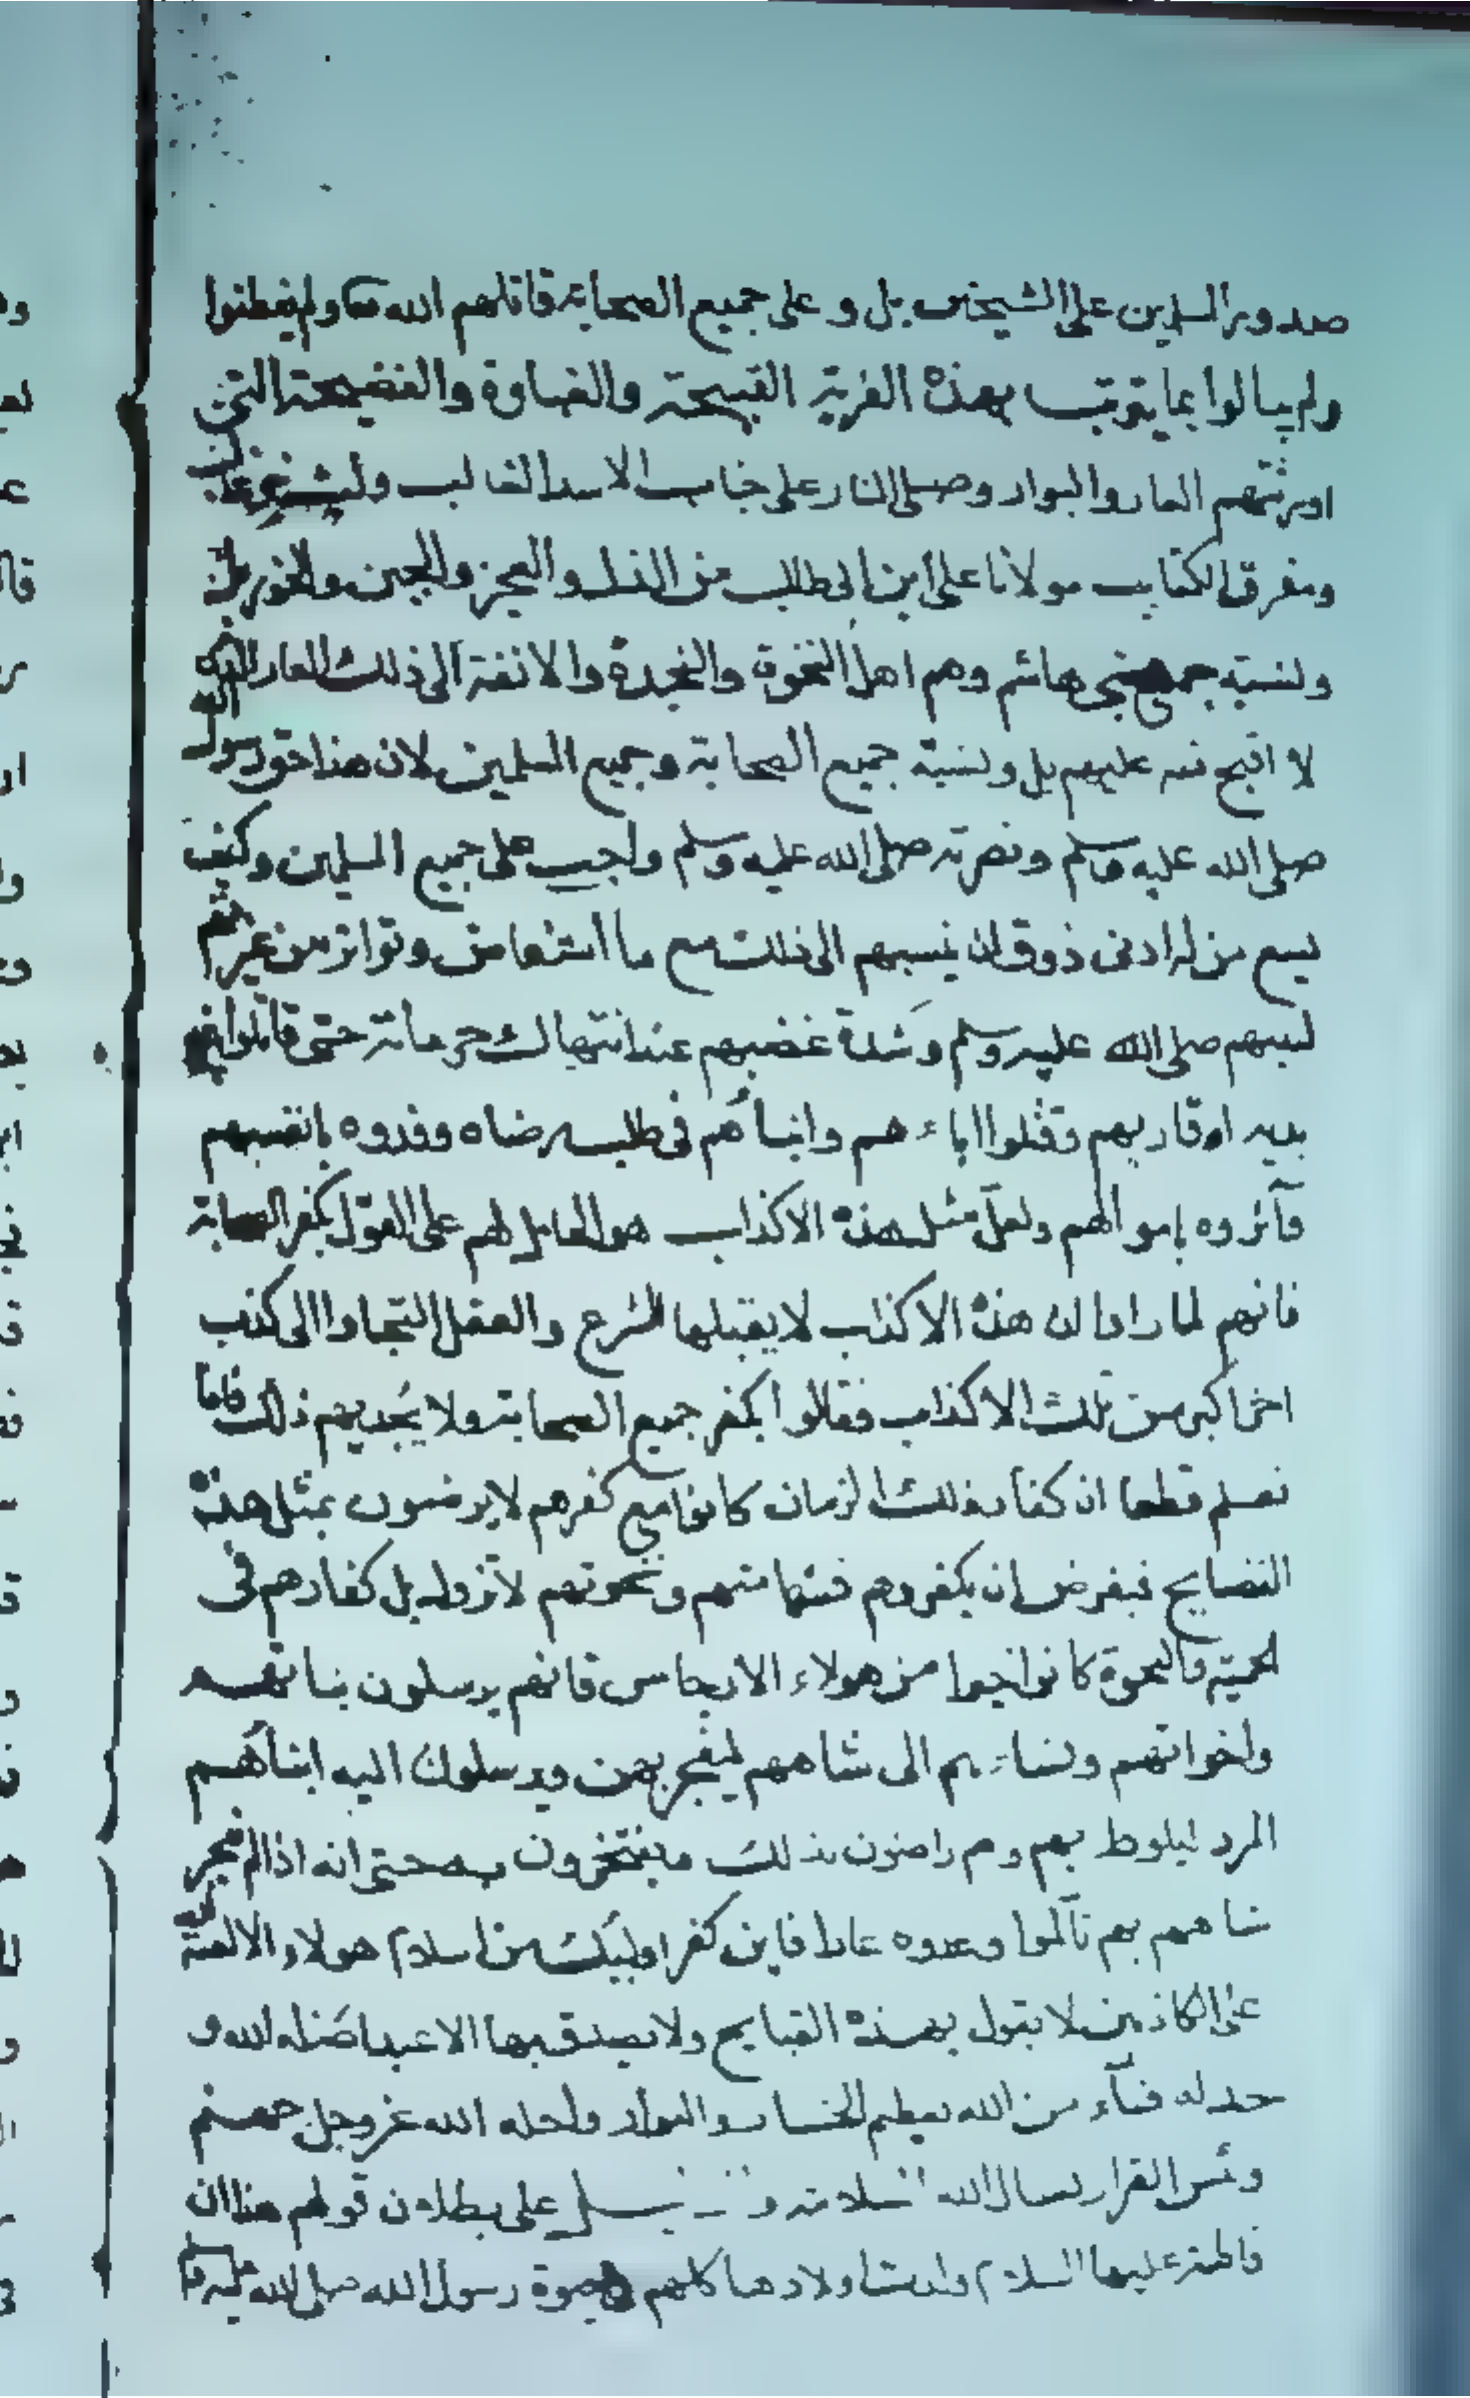 صدور المسلمين على الشيخين بل وعلى جميع الصحابة قاتلهم الله ولم يفطنوا
ولم يبالوا بما يترتب بهذه الفرية القبيحة والغباوة والفضيحة التي
اورثتهم العار والبوار وصلى النار على جناب الاسد الغالب وليث
ومفرق الكتايب مولانا على ابن ابى طالب من الذل والعجز والجبن والخور بل
ونسبة جميع بنى هاشم وهم اهل النخوة والنجدة والانفة الى ذلك العار الذى
لا اقبح منه عليهم بل ونسبة جميع الصحابة وجميع المسلمين لان هذا حق رسول الله
صلى الله عليه وسلم ونصرته صلى الله عليه وسلم واجب على جميع المسلمين وكيف
يسع من له ادنى ذوق ان ينسبهم الى ذلك مع ما استفاض وتواتر من غيرتهم
لنبيهم صلى الله عليه وسلم وشدة غضبهم عند انتهاك حرماته حتى قاتلوا
بديه اوقاربهم وقتلوا اباءهم وابنأهم فى طلب رضاه وفدوه بانفسهم
وآثروه باموالهم ولعل مثل هذه الاكذاب هو الحامل لهم على القول بكفر الصحابة
فانهم لما رادا ان هذه الاكذاب لا يقبلها الشرع والعقل التجاوا الى كذب
اخر اكبر من تلك الاكذاب فقالوا بكفر جميع الصحابة ولا يجديهم ذلك فاننا
نعلم قطعا ان كفار ذلك الزمان كانوا مع كفرهم لا يرضون بمثل هذه
الفضايح فبفرض ان يكفروهم فشهامتهم ونخوتهم لا تزول بل كفارهم فى
الحمية والنخوة كانوا خيرا من هولاء الارجاس فانهم يرسلون بناتهم
واخواتهم ونساءهم الى شاههم ليفجر بهمن ويرسلون اليه ابنأهم
المرد ليلوط بهم وهم راضون بذلك ويفتخرون به حتى انه اذا لم يفجر
شاههم بهم تآلموا وعدوه عارا فاين كفر اوليك من اسلام هولاء الا لعنة الله
على الكاذبين لا يقول بهذه القبايح ولا يصدق بها الا عبد اضله الله و
خذله فبآء من الله بعظيم الخسار والبوار واحله الله عز وجل جهنم
وبئس القرار نسال الله السلامة على بطلان قولهم هذا ان
فاطمة عليها السلام ولدت اولادها كلهم حيوة رسول الله صلى الله عليه